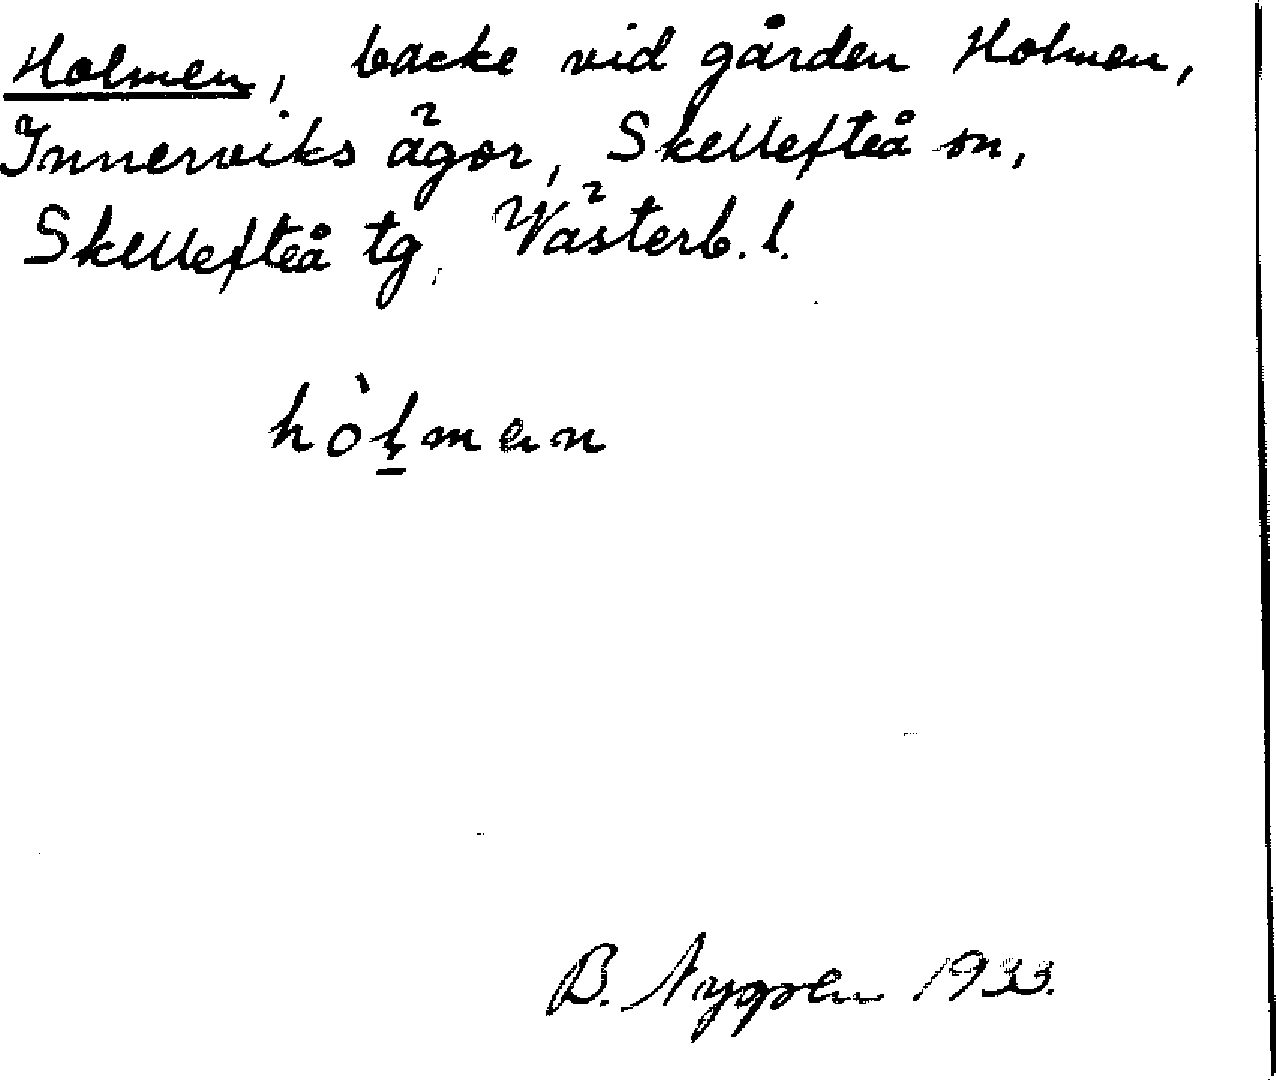 Holmen, backe vid gården Holmen,
Innerviks ägor, Skellefteå sn,
Skellefteå tg, Västerb. l.
hòl̠men
B. Nygren 1933.